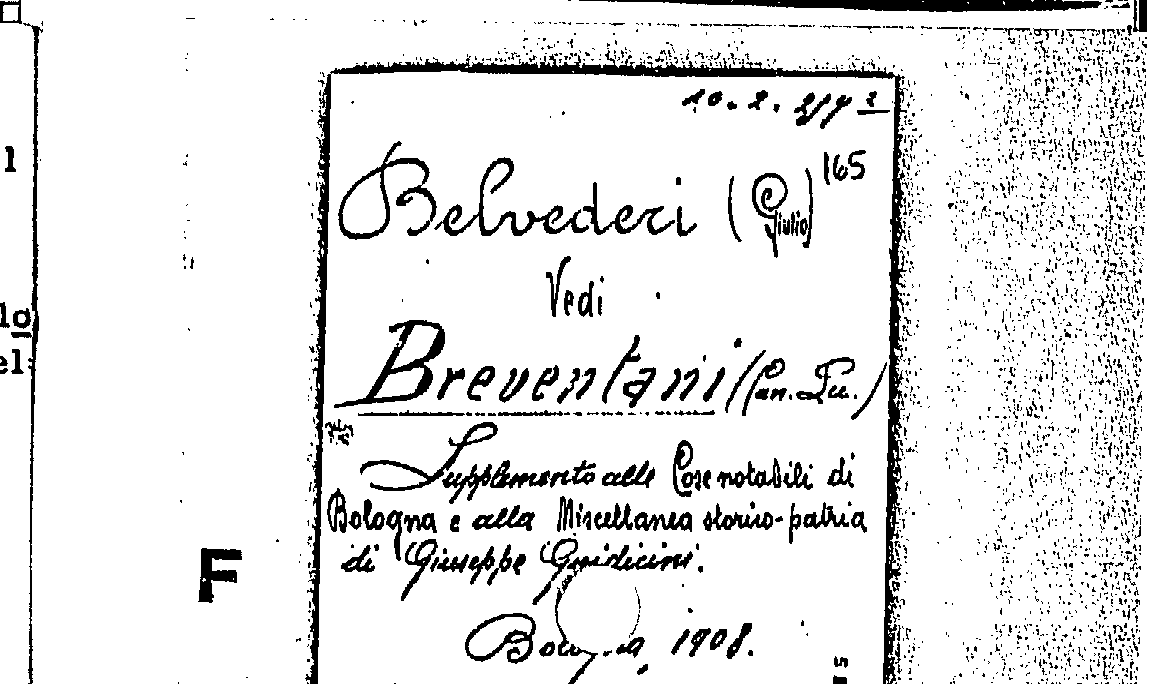 l
lo
el
165
Belvederi (Giulio)
Vedi
Breventani (Can. Lu.)
Supplemento alle Cose notabili di
Bologna e alla Miscellanea storico-patria
di Giuseppe Guidicini.
F
Bologna, 1908.